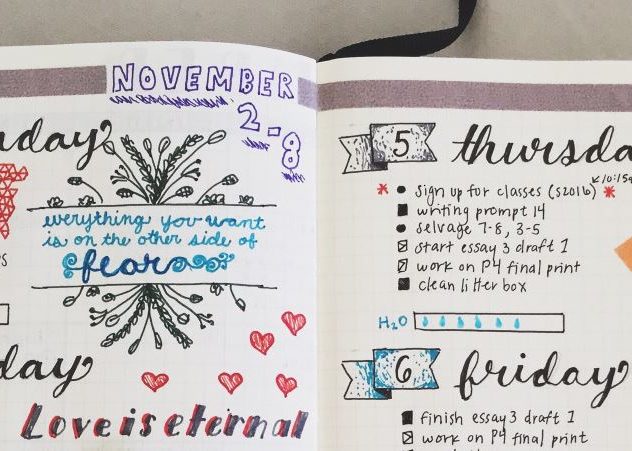 NOVEMBER
2-8
everything you want
is on the other side of
fear
day
Love is eternal
5
sign up for classes (s2016)
writing prompt 14
selvage 7-8, 3-5
start essay 3 draft 1
work on P4 final print
clean litter box
H2O
6 friday
finish essay 3 draft 1
work on P4 final print